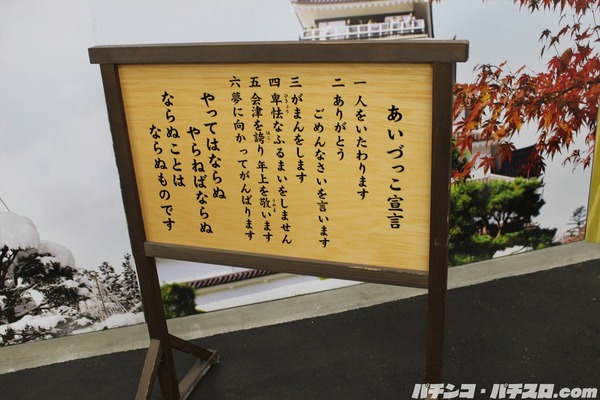 あいづっこ宣言
一 人をいたわります
二 ありがとう
ごめんなさいを言います
三 がまんをします
四 卑怯なふるまいをしません
五 会津を誇り年上を敬います
六 夢に向かってがんばります
やってはならぬ
やらねばならぬ
ならぬことは
ならぬものです
パチンコ・パチスロ.com